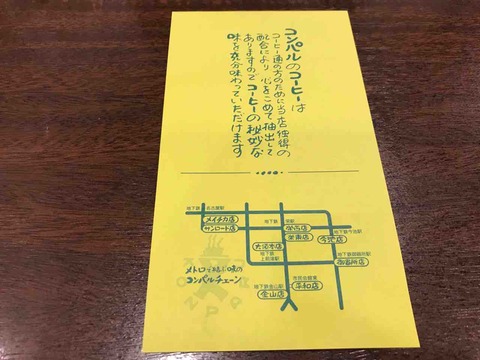 コンパルのコーヒーは
コーヒー通の方のために当店独得の
配合により 心をこめて抽出して
ありますのでコーヒーの秘妙な
味を充分味わっていただけます
地下鉄 名古屋駅
メイチカ店
サンロード店
地下鉄 栄駅
栄西店
栄東店
地下鉄今池駅
今池店
大須本店
地下鉄
上前津駅
地下鉄御器所駅
御器所店
メトロで結ぶ味の
コンパルチェーン
市民会館東
平和店
地下鉄金山駅
金山店